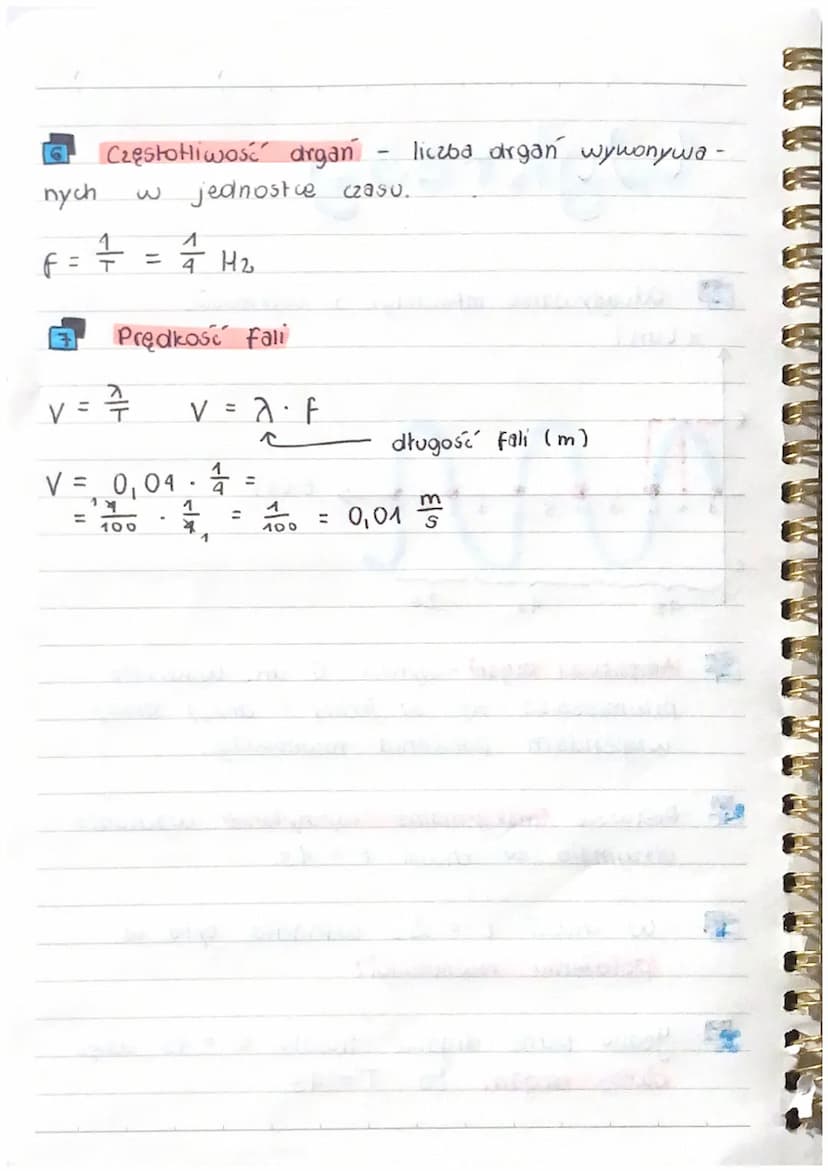 6 Częstotliwość drgań - liczba drgań wykonywa-
nych w jednostce czasu.
f = 1/T = 1/4 Hz
7 Prędkość fali
V = λ/T V = λ · f
długość fali (m)
V = 0,04 · 1/4 =
= 4/100 · 1/4 = 1/100 = 0,01 m/s